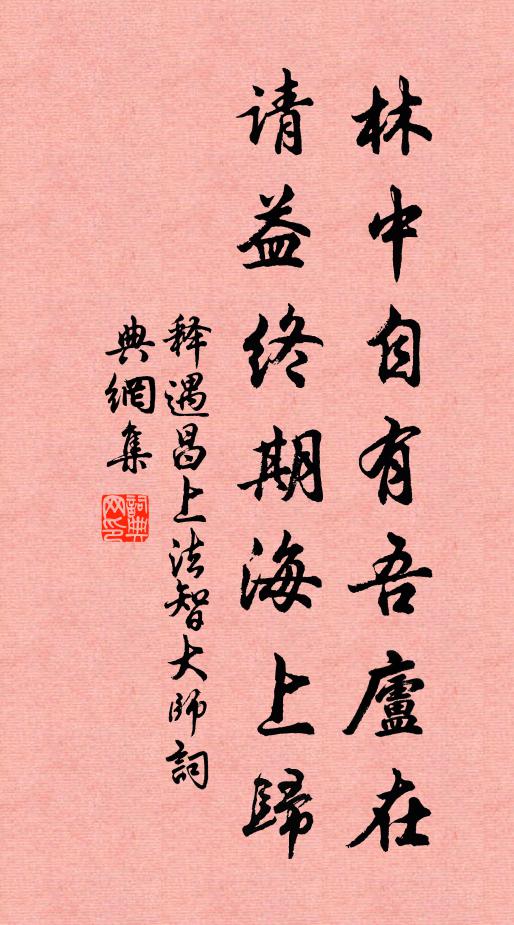 林中自有吾廬在
请益终期海上歸
释遇昌上法智大师詞
典網集
詞典网印